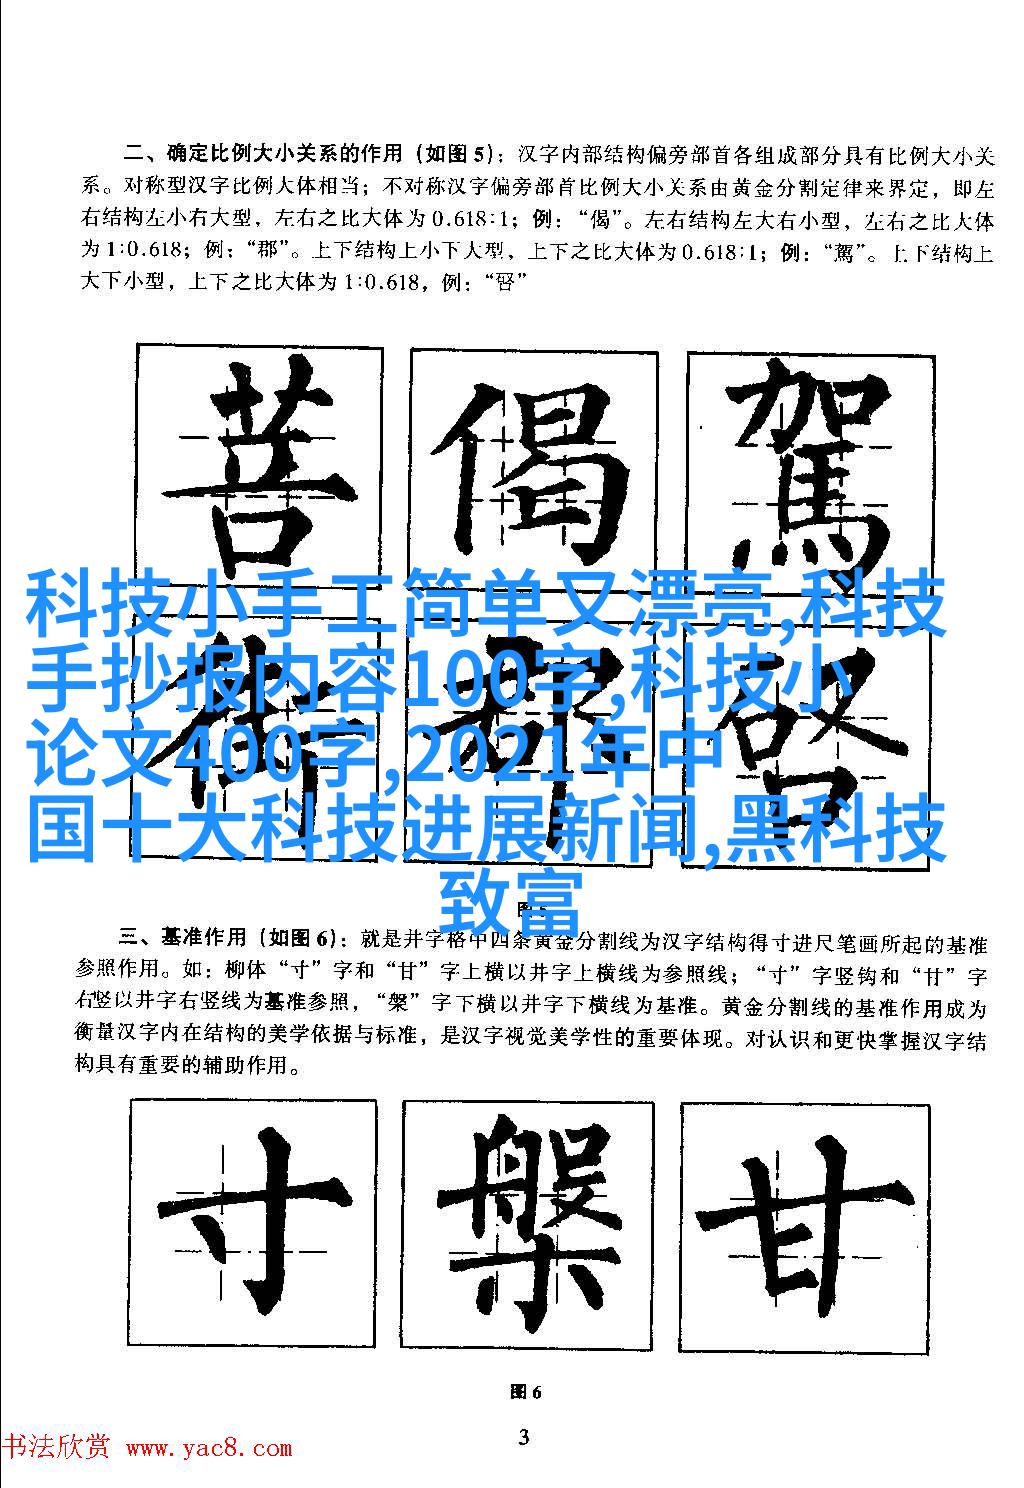 二、确定比例大小关系的作用（如图5）：汉字内部结构偏旁部首各组成部分具有比例大小关
系。对称型汉字比例大体相当；不对称汉字偏旁部首比例大小关系由黄金分割定律来界定，即左
右结构左小右大型，左右之比大体为0.618:1；例：“偈”。左右结构左大右小型，左右之比大体
为1:0.618；例：“郡”。上下结构上小下大型，上下之比大体为0.618:1；例：“駕”。上下结构上
大下小型，上下之比大体为1:0.618，例：“晵”
菩 偈 駕
科技小手工简单又漂亮,科技
手抄报内容100字,科技小
论文400字,2021年中
国十大科技进展新闻,黑科技
致富
郡
三、基准作用（如图6）：就是井字格中四条黄金分割线为汉字结构得寸进尺笔画所起的基准
参照作用。如：柳体“寸”字和“甘”字上横以井字上横线为参照线；“寸”字竖钩和“甘”字
右竖以井字右竖线为基准参照，“槃”字下横以井字下横线为基准。黄金分割线的基准作用成为
衡量汉字内在结构的美学依据与标准，是汉字视觉美学性的重要体现。对认识和更快掌握汉字结
构具有重要的辅助作用。
寸 槃 甘
图6
3
书法欣赏 www.yac8.com